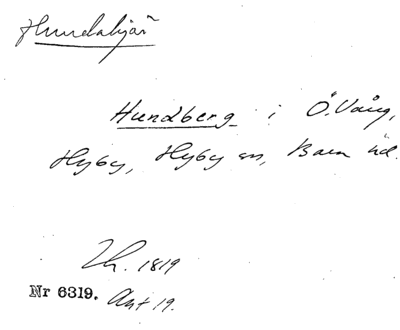 Hundabjär
Hundberg i Ö. Vång,
Hyby, Hyby sn, Bara hd.
Lh. 1819
Nr 6319. Ant 19.